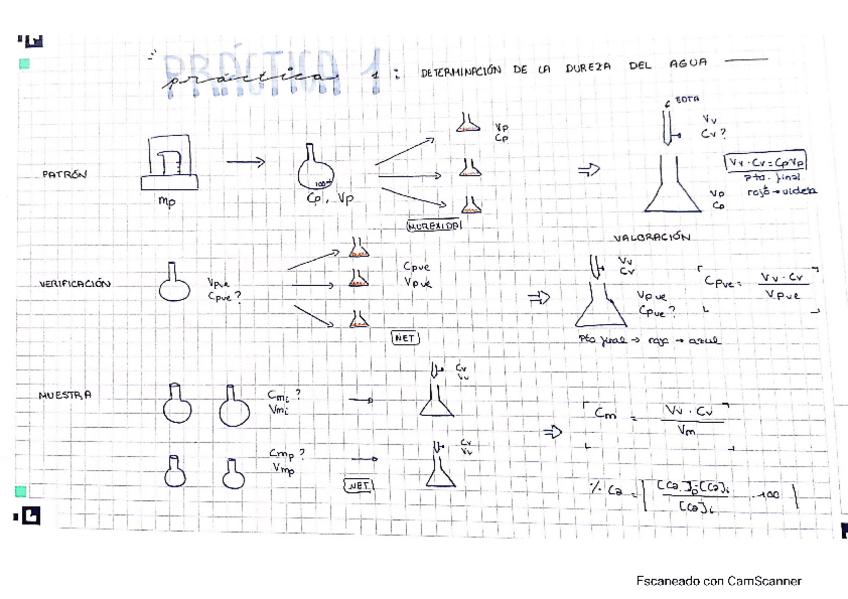 PRÁCTICA 1
práctica 1: DETERMINACIÓN DE LA DUREZA DEL AGUA
EDTA
Vv
Cv?
Vp
Cp
PATRÓN
mp
100ml
Cp, Vp
MUREXIDA
Vp
Cp
Vv · Cv = Cp Vp
pto. final
rojo → violeta
VALORACIÓN
VERIFICACIÓN
Vpve
Cpve?
Cpve
Vpve
NET
Vv
Cv
Vpve
Cpve?
Cpve = Vv · Cv / Vpve
Pto final → rojo → azul
MUESTRA
Cmi?
Vmi
Cv
Vv
Cm = Vv · Cv / Vm
Cmp?
Vmp
NET
Cv
Vv
% Ca = | [Ca]p - [Ca]i / [Ca]i · 100 |
Escaneado con CamScanner